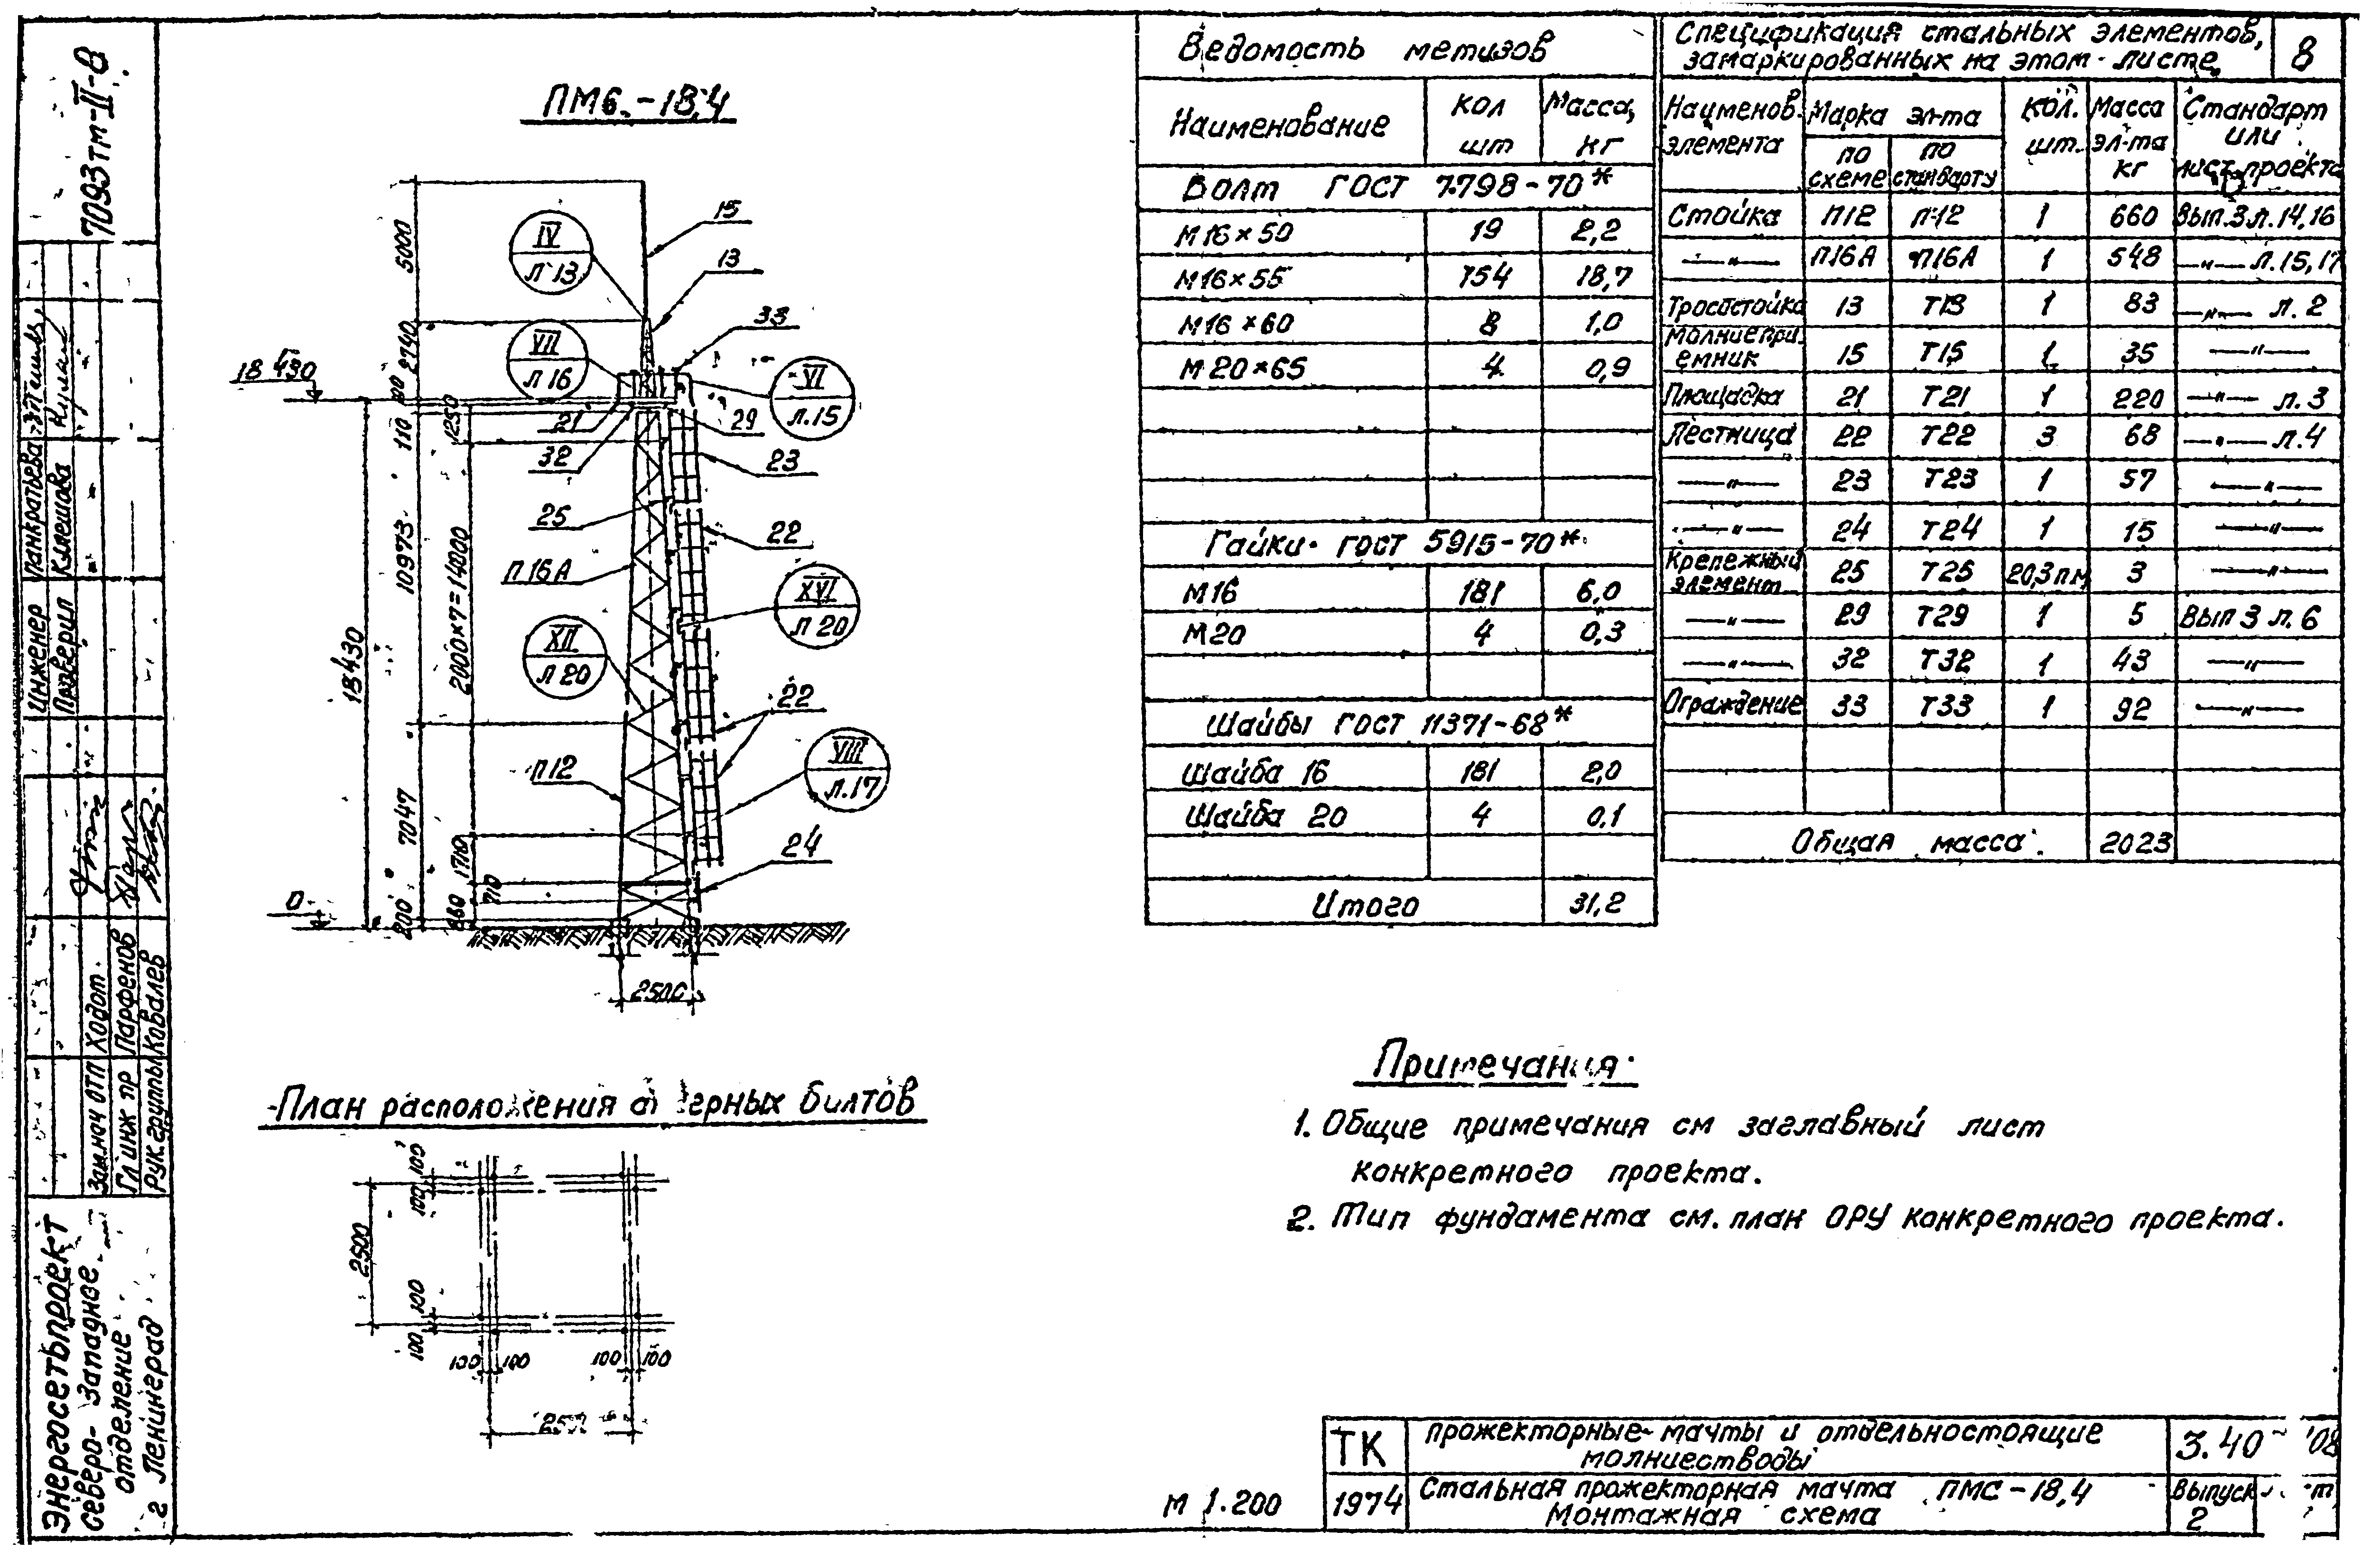 7093тм-II-8
ПМС-18,4
5000
2740
110
10973
7047
200
18430
18 430
0
1250
2000×7=14000
1710
710
2500
IV
л 13
VII
л 16
VI
л.15
XVI
л 20
XII
л 20
VIII
л.17
15
13
33
21
32
29
23
25
22
П 16А
22
П12
24
План расположения болтов
2500
100
100
100
100
100 100
100 100
Ведомость метизов
Наименование
Кол шт
Масса, кг
Болт ГОСТ 7798-70*
М16×50 19 2,2
М16×55 154 18,7
М16×60 8 1,0
М20×65 4 0,9
Гайки ГОСТ 5915-70*
М16 181 6,0
М20 4 0,3
Шайбы ГОСТ 11371-68*
Шайба 16 181 2,0
Шайба 20 4 0,1
Итого 31,2
Спецификация стальных элементов,
замаркированных на этом листе
8
Наименов. элемента
Марка эл-та
по схеме
по стандарту
Кол. шт.
Масса эл-та кг
Стандарт или лист проекта
Стойка П12 П12 1 660 Вып.3 л.14,16
—"— П16А П16А 1 548 —"— л.15,17
Тросостойка 13 Т13 1 83 —"— л.2
Молниепри-
емник 15 Т15 1 35 —"—
Площадка 21 Т21 1 220 —"— л.3
Лестница 22 Т22 3 68 —"— л.4
—"— 23 Т23 1 57 —"—
—"— 24 Т24 1 15 —"—
Крепежный
элемент 25 Т25 20,3 п.м 3 —"—
—"— 29 Т29 1 5 Вып 3 л.6
—"— 32 Т32 1 43 —"—
Ограждение 33 Т33 1 92 —"—
Общая масса 2023
Примечания:
1. Общие примечания см заглавный лист
конкретного проекта.
2. Тип фундамента см. план ОРУ конкретного проекта.
М 1:200
ТК
1974
Прожекторные мачты и отдельностоящие
молниеотводы
Стальная прожекторная мачта ПМС-18,4
Монтажная схема
3.40
Выпуск
2
Инженер Панкратьева
Проверил Клешова
Зам.нач ОТП Ходот
Гл инж пр Парфенов
Рук группы Ковалев
Энергосетьпроект
Северо-Западное
отделение
г Ленинград